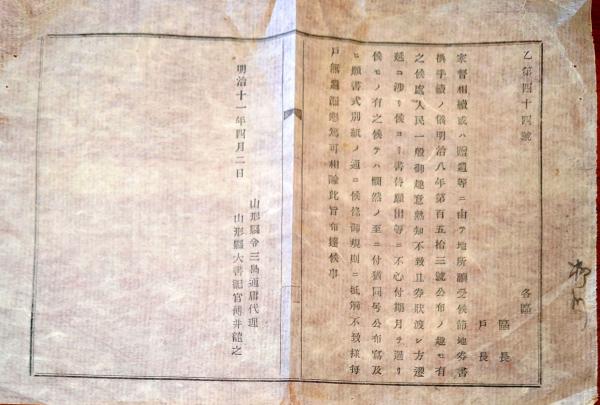 乙第四十四號
各區
區長
戶長
家督相續或ハ贈遺等ニ由テ地所讓受候節地券書
換手續ノ儀明治八年第百五拾三號公布ノ趣モ有
之候處人民一般御趣意熟知不致且券狀渡シ方遷
延ニ涉リ候ヨリ書替願出等ニ不心付期月ヲ過リ
候モノ有之候テハ憫然ノ至ニ付猶同号公布寫及
ヒ願書式別紙ノ通ニ候條御規則ニ抵觸不致樣每
戶無遺漏懇篤可相諭此旨布達候事
明治十一年四月二日
山形縣令三島通庸代理
山形縣大書記官薄井龍之